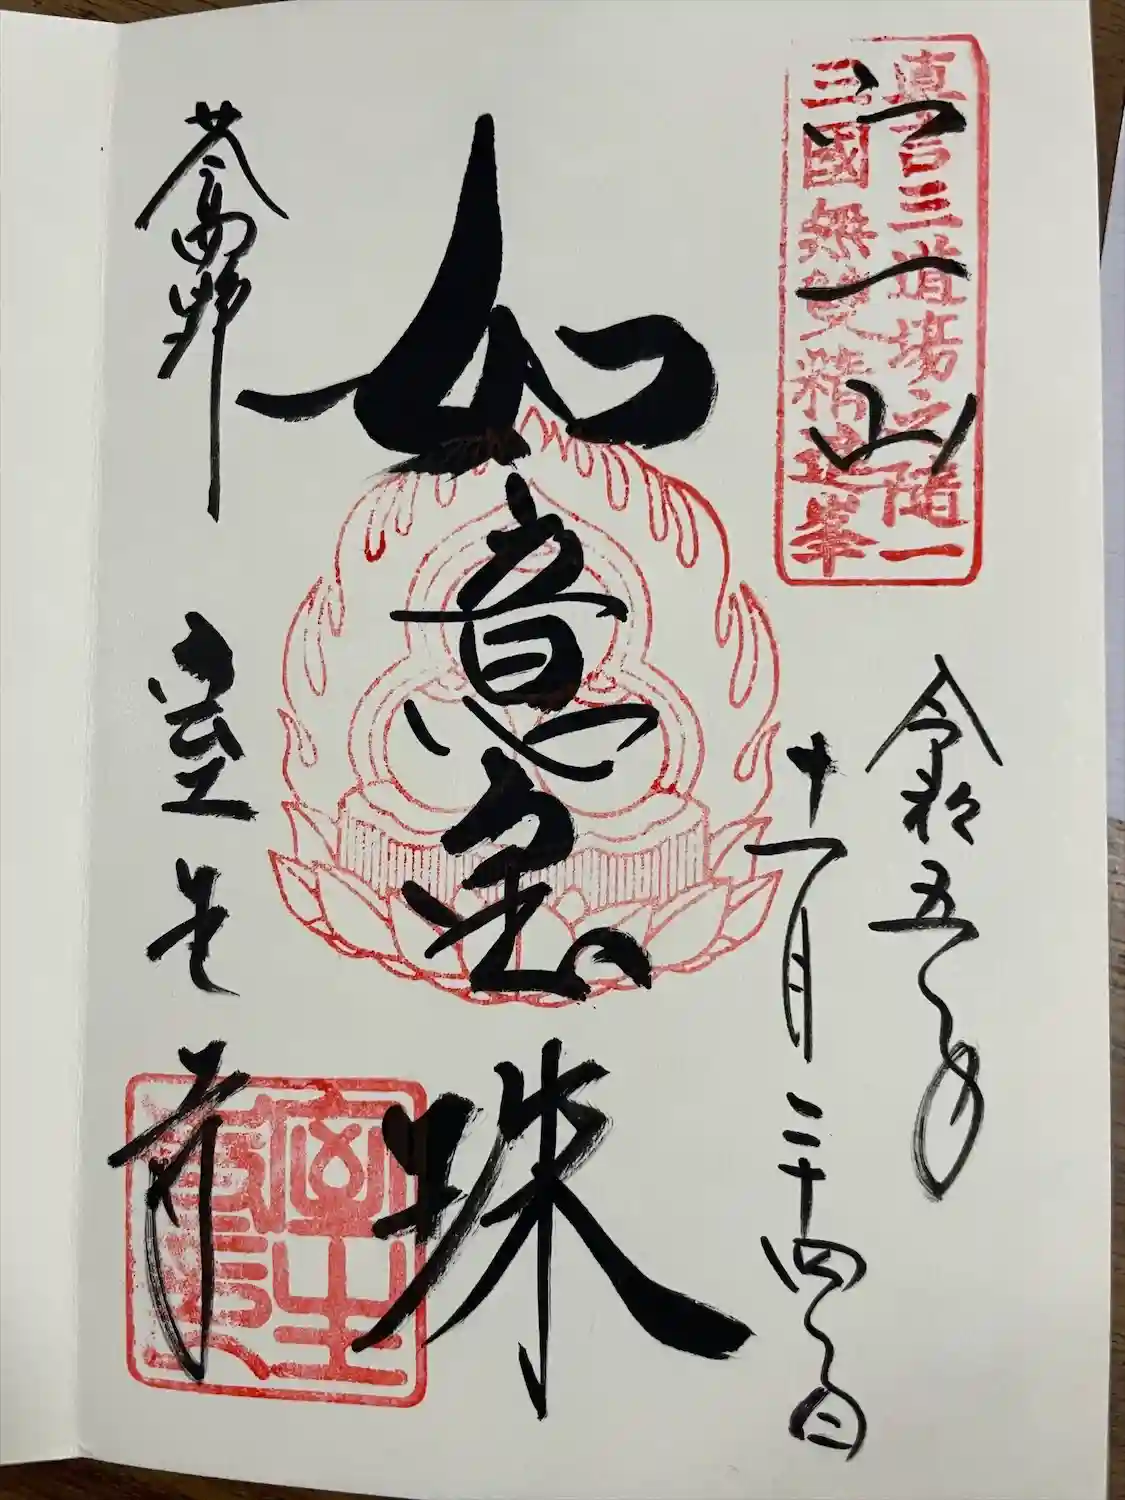 真言三道場之隨一
三國無雙精進峯
宀一山
令和五年
十一月二十四日
如意宝珠
女人高野
室生寺